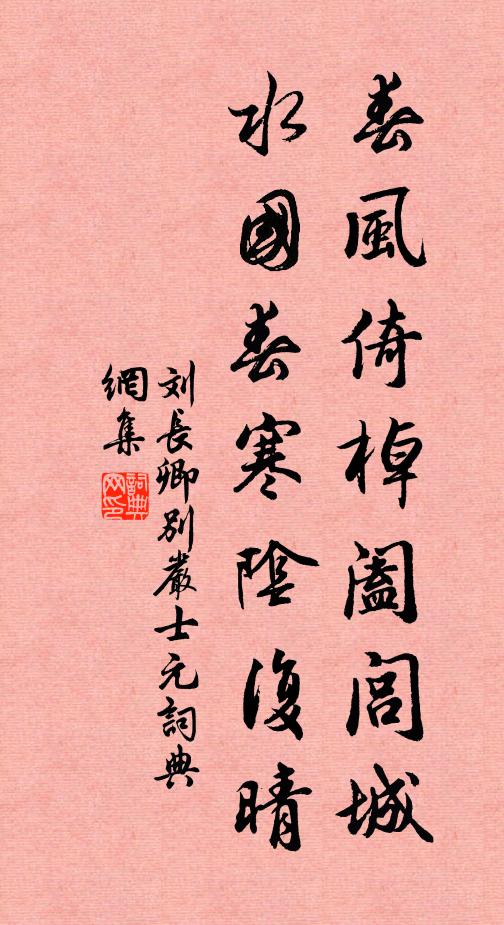 春風倚棹闔閭城
水國春寒陰復晴
刘長卿別嚴士元詞典
網集
詞典网印